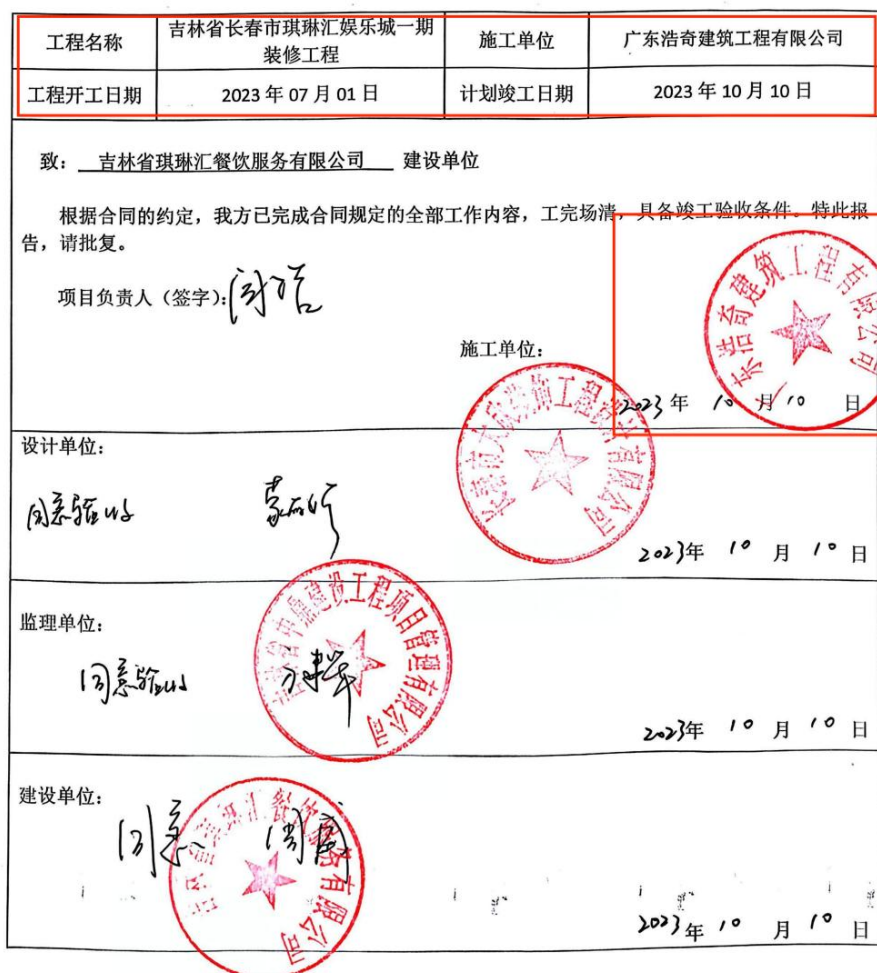 工程名称
吉林省长春市琪琳汇娱乐城一期
装修工程
施工单位
广东浩奇建筑工程有限公司
工程开工日期
2023年07月01日
计划竣工日期
2023年10月10日
致：吉林省琪琳汇餐饮服务有限公司 建设单位
根据合同的约定，我方已完成合同规定的全部工作内容，工完场清，具备竣工验收条件。特此报
告，请批复。
项目负责人（签字）：
施工单位：
广东浩奇建筑工程有限公司
2023年 10月10 日
设计单位：
同意验收
2023年 10 月 10 日
监理单位：
同意验收
建设工程项目管理有限公司
2023年 10 月 10 日
建设单位：
同意
吉林省琪琳汇餐饮服务有限公司
2023年 10 月 10 日